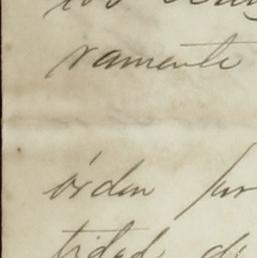 ramente
órden por
tidad de